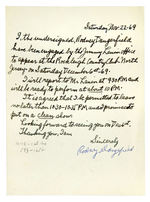 Saturday, Nov. 22-69
I, the undersigned, Rodney Dangerfield
have been engaged by the Jimmy Lunn office
to appear at the Rockleigh Country Club North
Jersey on Saturday December 6th 69.
I will report to Mr Lunn at 9:30 P.M. and
will be ready to perform at about 10 P.M.
It is agreed that I be permitted to leave
no later than 10:30-10:35 P.M. and promise to
put on a clean show.
Looking forward to seeing you on Dec 6th.
Thanking you, I am
Sincerely
Rodney Dangerfield